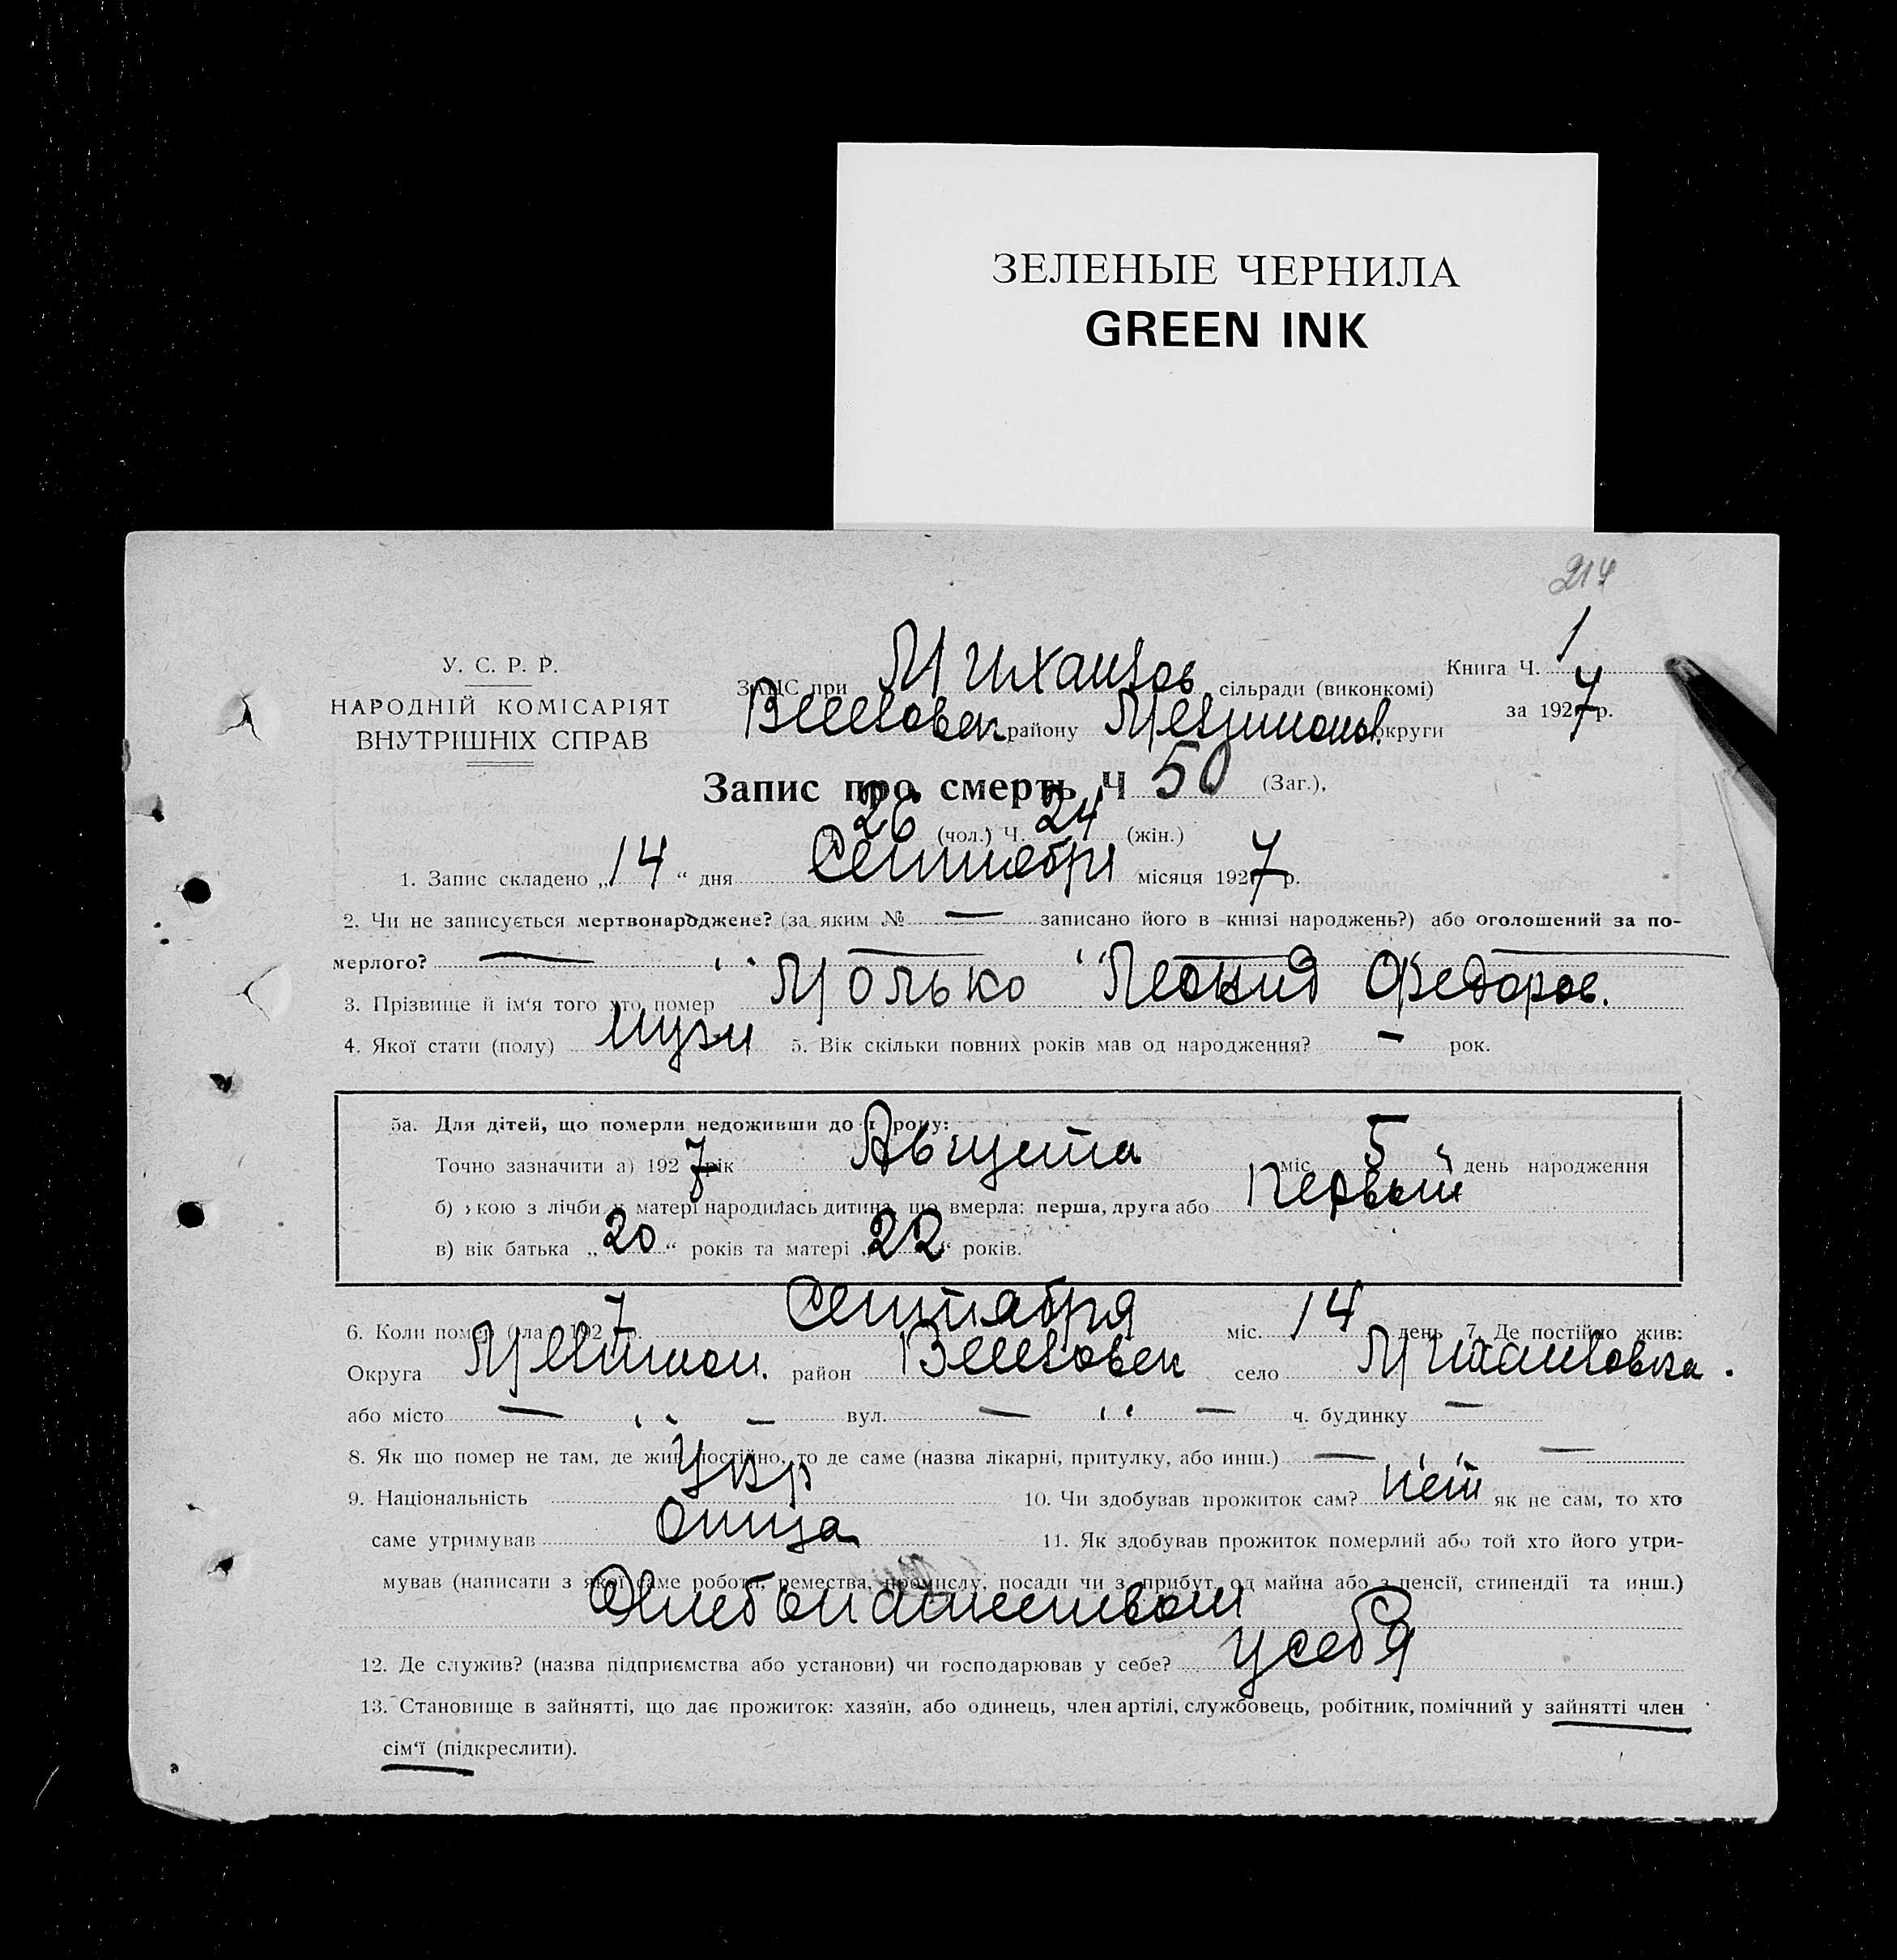 ЗЕЛЕНЫЕ ЧЕРНИЛА
GREEN INK
214
У. С. Р. Р.
НАРОДНІЙ КОМІСАРІЯТ
ВНУТРІШНІХ СПРАВ
ЗАПС при Михайлов сільради (виконкомі)
Книга Ч. 1
Веселовск району Мелитопол округи
за 1927 р.
Запис про смерть Ч 50 (Заг.),
26 (чол.) Ч. 24 (жін.)
1. Запис складено „14“ дня Сентиебря місяця 1927 р.
2. Чи не записується мертвонароджене? (за яким № — записано його в книзі народжень?) або оголошений за по-
мерлого? —
3. Прізвище й ім‘я того хто помер Молько Леонид Федоров.
4. Якої стати (полу) мужи 5. Вік скільки повних років мав од народження? — рок.
5а. Для дітей, що померли недоживши до 1 року:
Точно зазначити а) 1927 рік Августа міс 5 день народження
б) якою з лічби у матері народилась дитина, що вмерла: перша, друга або первый
в) вік батька „20“ років та матері „22“ років.
6. Коли помер (ла) 1927 р. Сентября міс. 14 день 7. Де постійно жив:
Округа Мелитоп. район Веселовск село Михайловка.
або місто — вул. — ч. будинку —
8. Як що помер не там, де жив постійно, то де саме (назва лікарні, притулку, або инш.) —
9. Національність Укр 10. Чи здобував прожиток сам? нет як не сам, то хто
саме утримував отца 11. Як здобував прожиток померлий або той хто його утри-
мував (написати з якої саме роботи, ремества, промислу, посади чи з прибут. од майна або з пенсії, стипендії та инш.)
Хлебопашеством
12. Де служив? (назва підприємства або установи) чи господарював у себе? у себя
13. Становище в зайнятті, що дає прожиток: хазяїн, або одинець, член артілі, службовець, робітник, помічний у зайнятті член
сім‘ї (підкреслити).